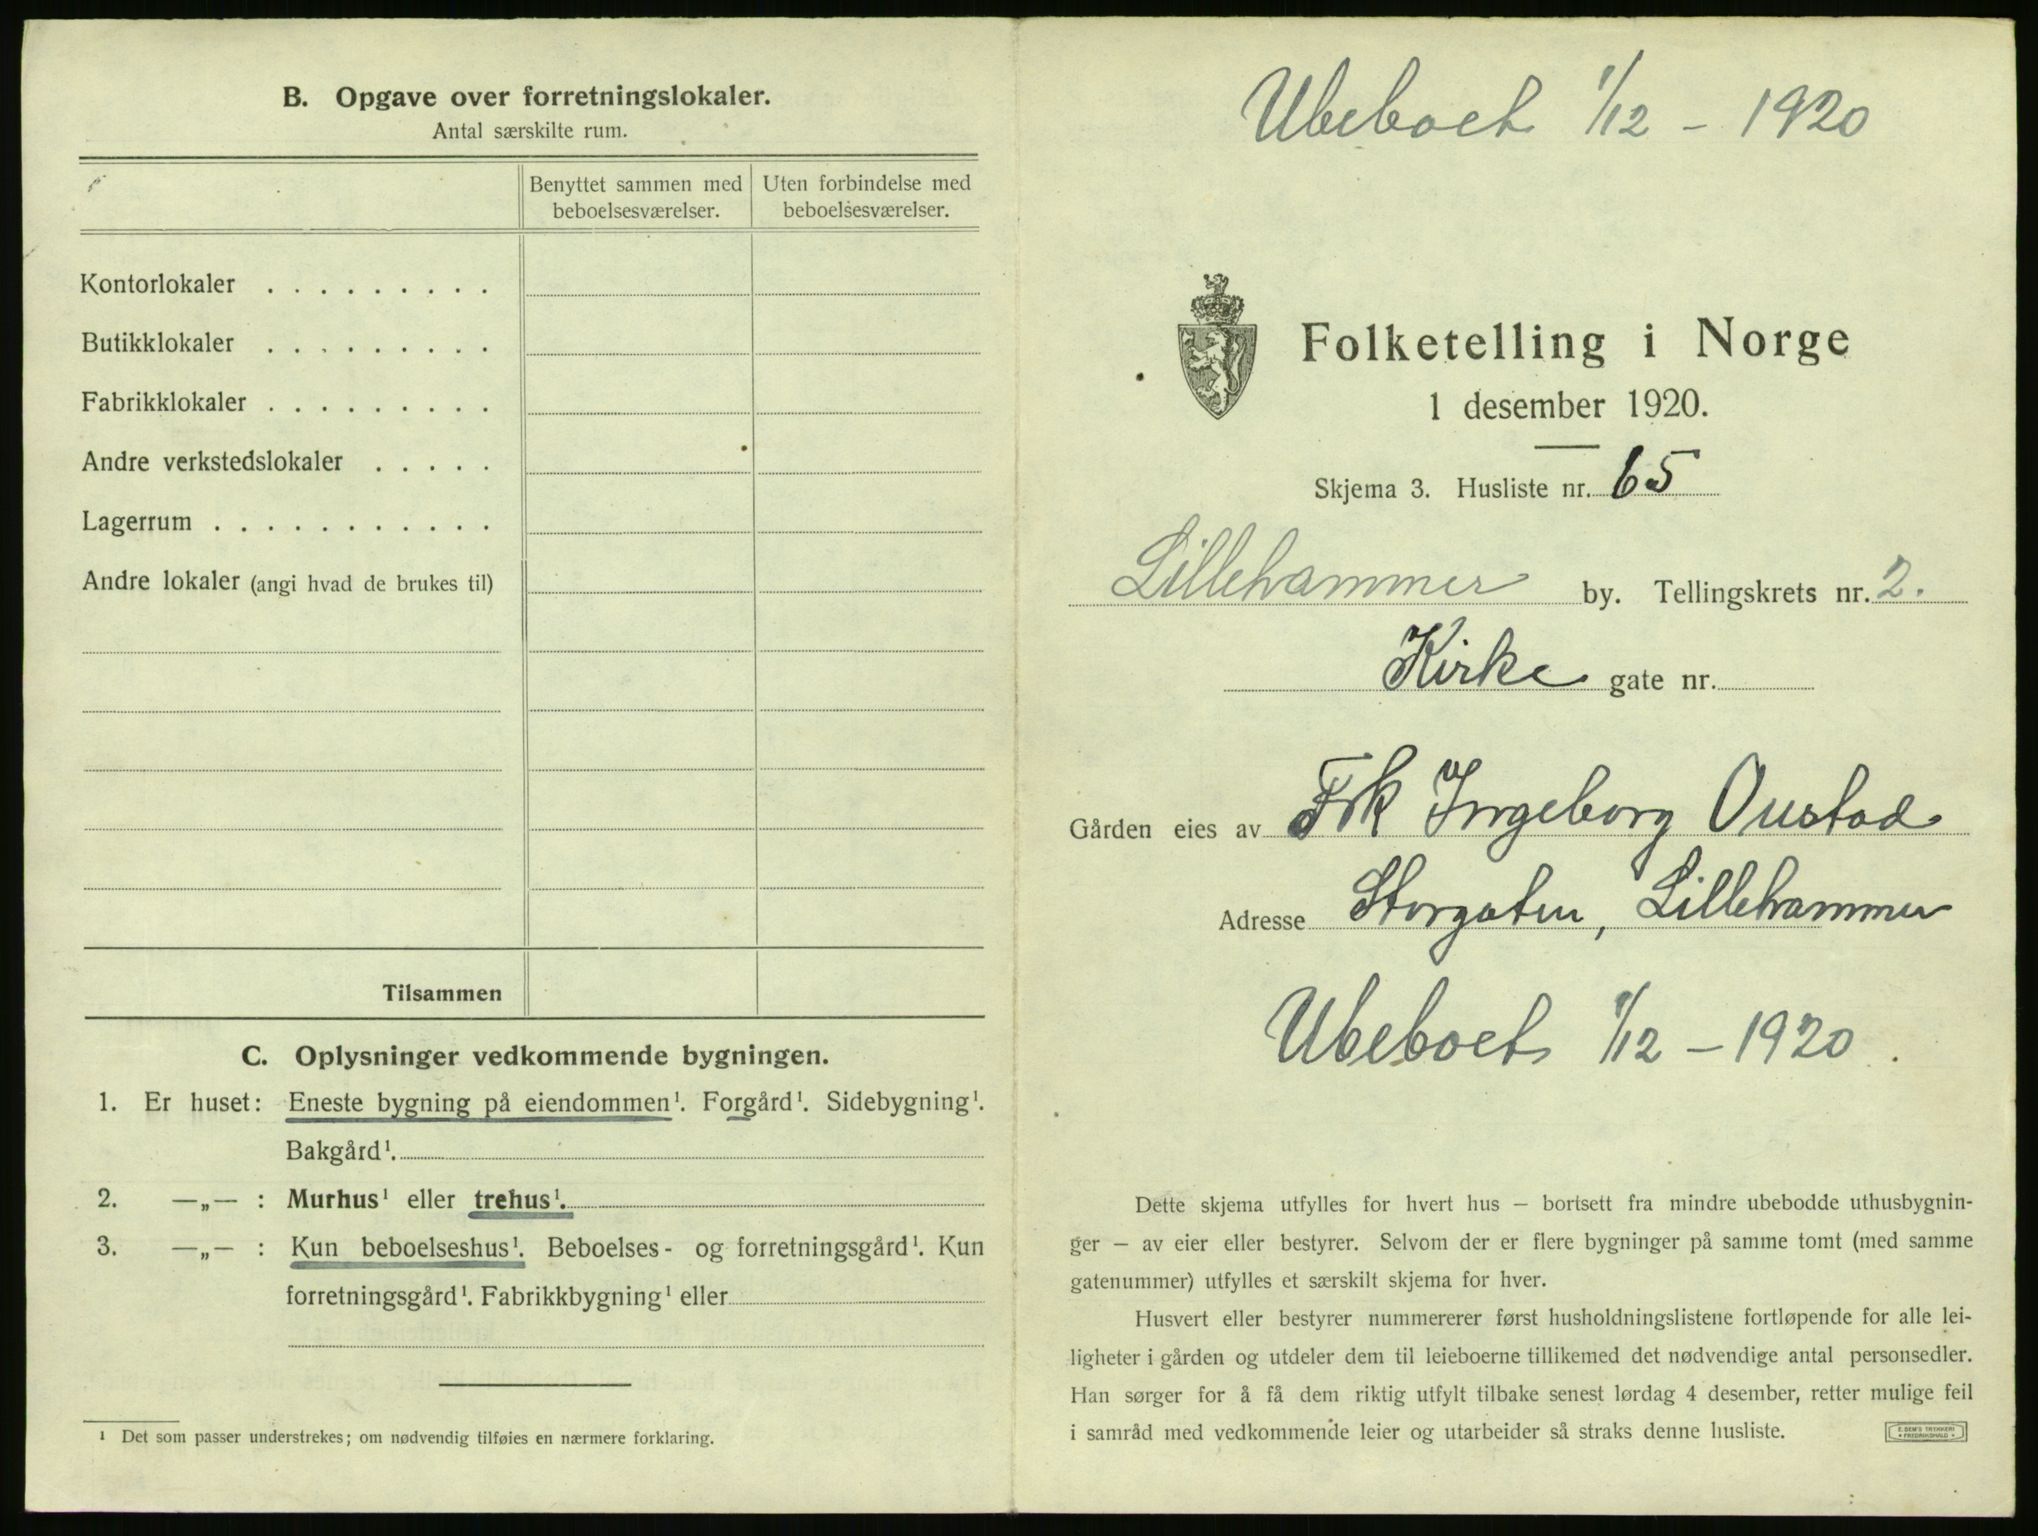 B. Opgave over forretningslokaler.
Antal særskilte rum.
Benyttet sammen med beboelsesværelser.
Uten forbindelse med beboelsesværelser.
Kontorlokaler . . . . . . . . .
Butikklokaler . . . . . . . . .
Fabrikklokaler . . . . . . . . .
Andre verkstedslokaler . . . . .
Lagerrum . . . . . . . . . . .
Andre lokaler (angi hvad de brukes til)
Tilsammen
C. Oplysninger vedkommende bygningen.
1. Er huset: Eneste bygning på eiendommen¹. Forgård¹. Sidebygning¹.
Bakgård¹.
2. —„— : Murhus¹ eller trehus¹.
3. —„— : Kun beboelseshus¹. Beboelses- og forretningsgård¹. Kun
forretningsgård¹. Fabrikkbygning¹ eller
¹ Det som passer understrekes; om nødvendig tilføies en nærmere forklaring.
Ubeboet 1/12 - 1920
Folketelling i Norge
1 desember 1920.
Skjema 3. Husliste nr. 65
Lillehammer by. Tellingskrets nr. 2.
Kirke gate nr.
Gården eies av Frk Ingeborg Oustad
Adresse Storgaten, Lillehammer
Ubeboet 1/12 - 1920.
Dette skjema utfylles for hvert hus — bortsett fra mindre ubebodde uthusbygnin-
ger — av eier eller bestyrer. Selvom der er flere bygninger på samme tomt (med samme
gatenummer) utfylles et særskilt skjema for hver.
Husvert eller bestyrer nummererer først husholdningslistene fortløpende for alle lei-
ligheter i gården og utdeler dem til leieboerne tillikemed det nødvendige antal personsedler.
Han sørger for å få dem riktig utfylt tilbake senest lørdag 4 desember, retter mulige feil
i samråd med vedkommende leier og utarbeider så straks denne husliste.
E. SEM'S TRYKKERI
FREDRIKSHALD